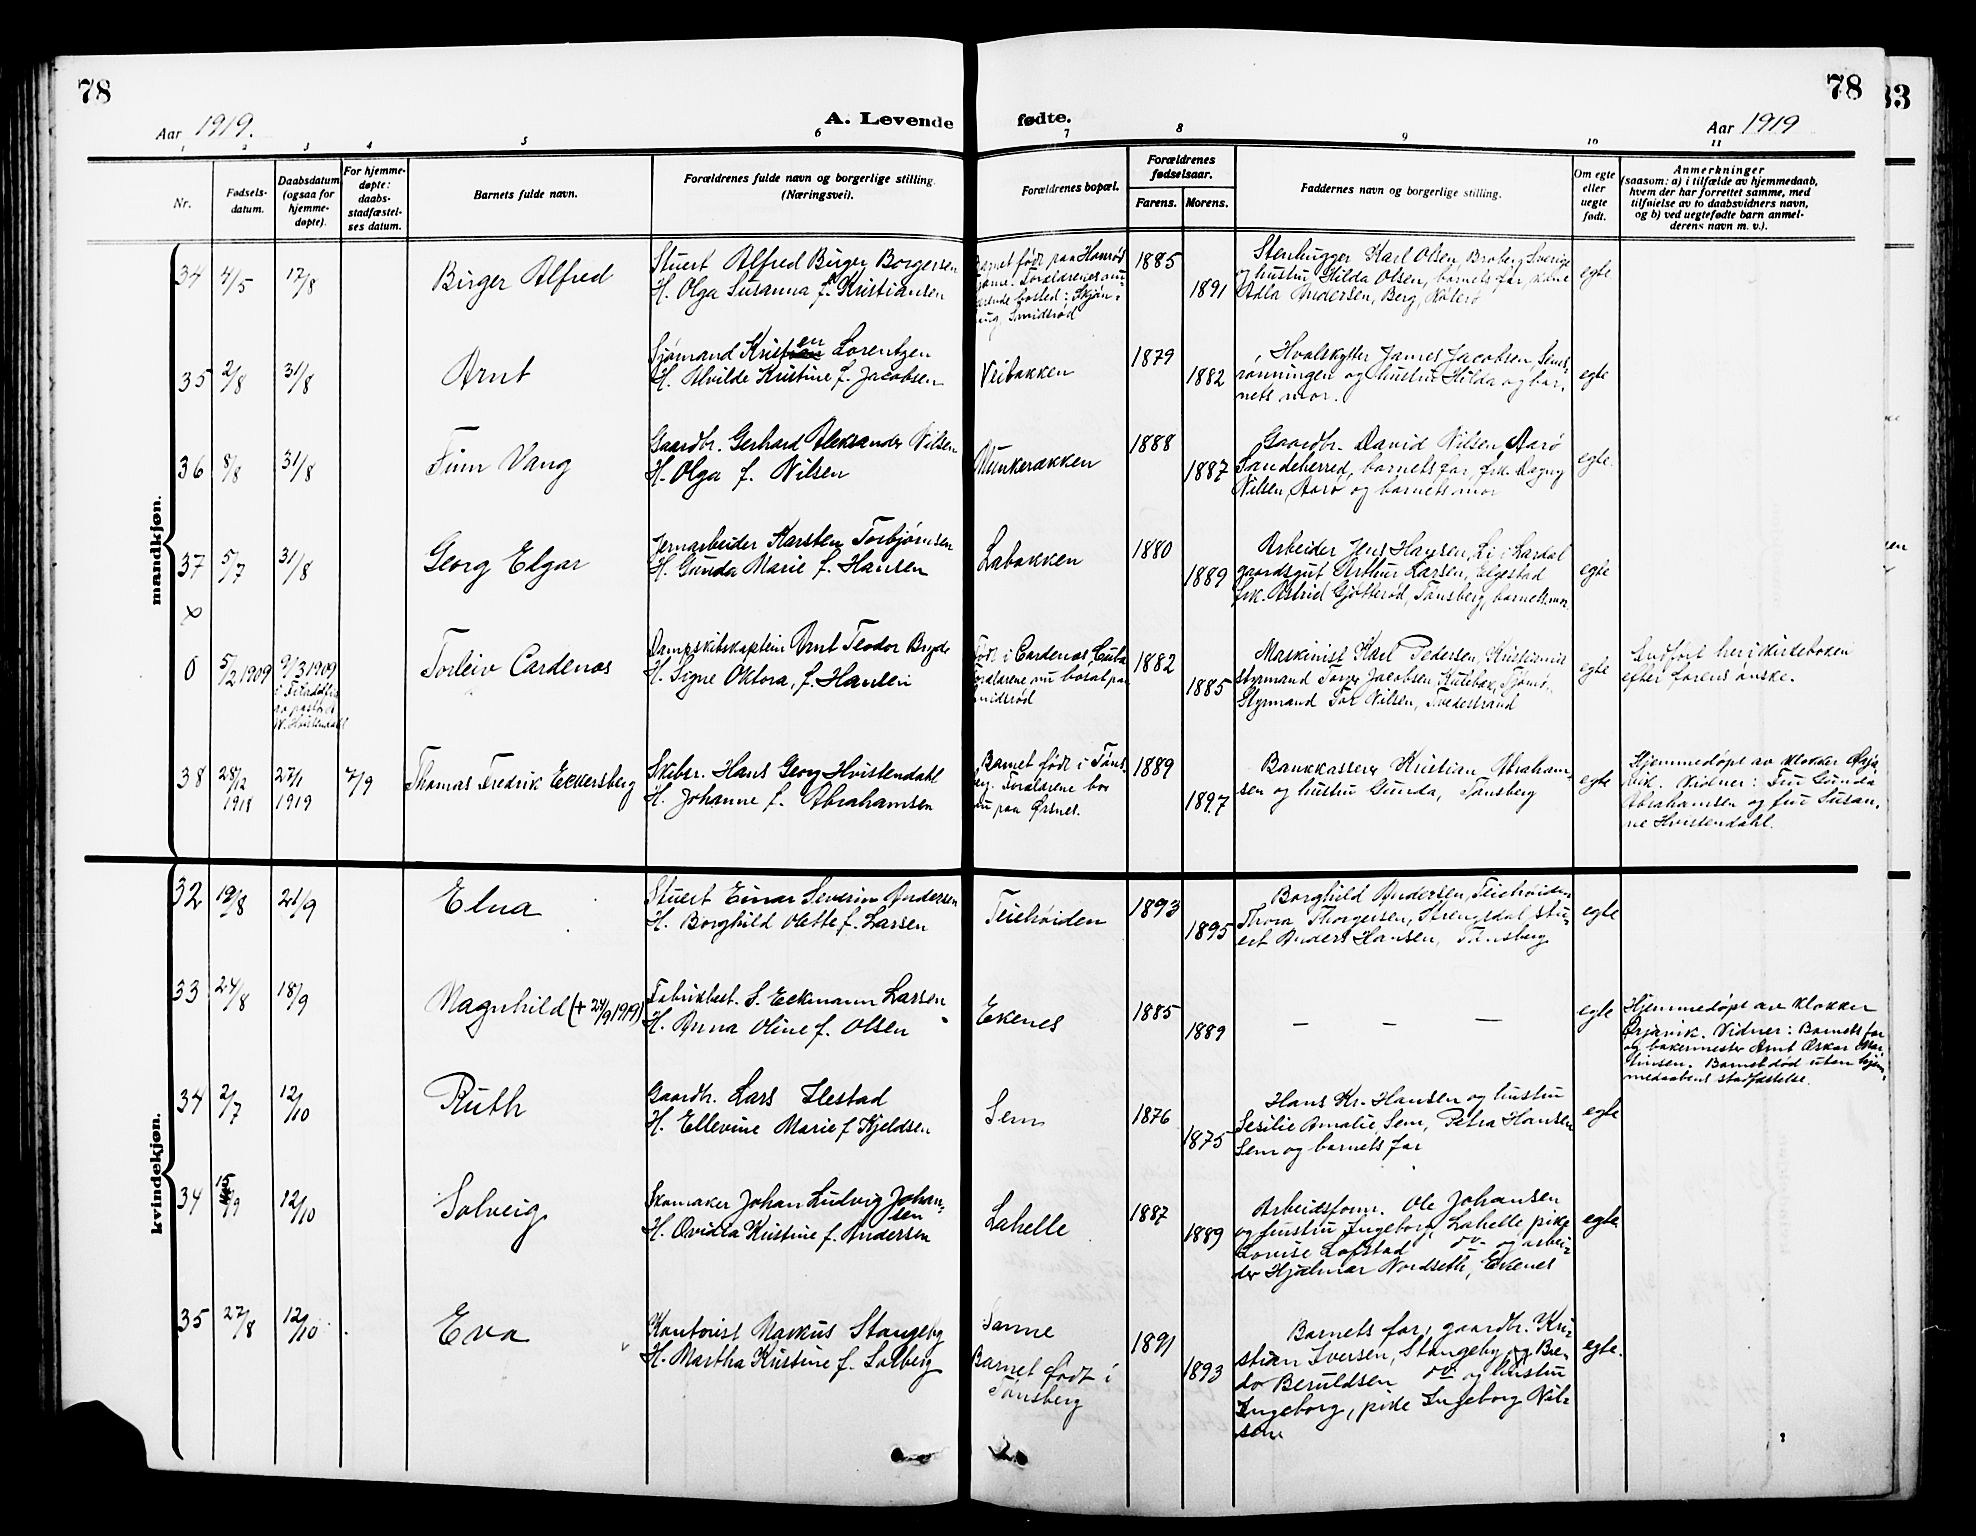 78
78
33
Aar 1919.
A. Levende
fødte.
Aar 1919
1
2
3
4
5
6
7
8
9
10
11
Nr.
Fødsels-
datum.
Daabsdatum
(ogsaa for
hjemme-
døpte).
For hjemme-
døpte:
daabs-
stadfæstel-
ses datum.
Barnets fulde navn.
Forældrenes fulde navn og borgerlige stilling.
(Næringsvei).
Forældrenes bopæl.
Forældrenes
fødselsaar.
Farens.
Morens.
Faddernes navn og borgerlige stilling.
Om egte
eller
uegte
født.
Anmerkninger
(saasom: a) i tilfælde av hjemmedaab,
hvem der har forrettet samme, med
tilføielse av to daabsvidners navn,
og b) ved uegtefødte barn anmel-
derens navn m. v.).
mandkjøn.
34
4/5
17/8
Birger Alfred
Stuert Alfred Birger Borgersen
H. Olga Susanna f. Kristiansen
Barnet født paa Hansrød
Tjøme. Forældrenes nu-
værende bosted: Skjøn-
haug, Smidsrød
1885
1891
Stenhugger Karl Olsen, Broberg, Sverige
og hustru Hilda Olsen, barnets far, kone
Adla Andersen, Berg, Nøterø
egte
35
2/8
31/8
Arnt
Sjømand Kristian en Lorentzen
H. Alvilde Kristine f. Jacobsen
Veibakken
1879
1882
Hvalskytter James Jacobsen, Sems-
rønningen og hustru Hilda og bar-
nets mor.
egte
36
8/8
31/8
Finn Vang
Gaardbr. Gerhard Aleksander Nilsen
H. Olga f. Nilsen
Munkerækken
1888
1887
Gaardbr. David Nilsen Aarø
Sandeherred, barnets far, frk. Dagny
Nilsen, Aarø og barnets mor
egte.
37
5/7
31/8
Georg Elgar
Jernarbeider Karsten Torbjørnsen
H. Gunda Marie f. Hansen
Labakken
1880
1889
Arbeider Jens Hansen, Li i Lardal
gaardsgut Arthur Larsen, Elgestad
frk. Astrid Gjøtterød, Tønsberg, barnets mor.
egte
x
0
5/2 1909
9/3 1909
Torleiv Cardenas
Dampskibskaptein Arnt Teodor Bryde
H. Signe Oktora, f. Hansen
Født i Cardenas, Cuba
Forældrene nu bosat paa
Smidsrød
1882
1885
Maskinist Karl Pedersen, Kristiania
styrmand Torger Jacobsen, Kulebak, Tjømø,
Styrmand Tor Nilsen, Tvedestrand
egte
Indført her i kirkeboken
efter farens ønske.
38
28/12
1918
27/1
1919
7/9
Thomas Fredrik Eckersberg
Skibsr. Hans Georg Hvistendahl
H. Johanne f. Abrahamsen
Barnet født i Tøns-
berg. Forældrene bor
nu paa Ørsnes.
1889
1897
Bankkasserer Kristian Abraham-
sen og hustru Gunda, Tønsberg
egte
Hjemmedøpt av klokker Ørja-
vik. Vidner: Fru Gunda
Abrahamsen og fru Susan-
ne Hvistendahl.
kvindekjøn.
32
19/8
21/9
Elna
Stuert Einar Severin Andersen
H. Borghild Olette f. Larsen
Teiehøiden
1893
1895
Borghild Andersen, Teiehøiden
Thora Thorgersen, Strengsdal, stu-
ert Anders Hansen, Tønsberg
egte
33
24/8
18/9
Magnhild († 24/9 1919)
Fabrikbest. S. Eckmann Larsen
H. Anna Oline f. Olsen
Ekenes
1885
1889
— — —
egte
Hjemmedøpt av klokker
Ørjavik. Vidner: Barnets far
og bakermester Arnt Oskar Mar-
tinsen. Barnet død uten hjem-
medaabens stadfæstelse.
34
2/7
12/10
Ruth
Gaardbr. Lars Ilestad
H. Ellevine Marie f. Kjeldsen
Sem
1876
1875
Hans Kr. Hansen og hustru
Sesilie Amalie, Sem, Petra Hansen
Sem og barnets far
egte
34
15/9
12/10
Solveig
Skomaker Johan Ludvig Johan-
sen
H. Ovidia Kristine f. Andersen
Lahelle
1887
1889
Arbeidsform. Ole Johansen
og hustru Ingeborg, Lahelle, pike
Lovise Lofstad do og arbei-
der Hjalmar Nordseth, Ekenes
egte.
35
27/8
12/10
Eva
Kontorist Markus Stangeby
H. Martha Kristine f. Solberg
Sanne
Barnet født i
Tønsberg
1891
1893
Barnets far, gaardbr. Kri-
stian Iversen, Stangeby og Bre-
do Beruldsen do og hustru
Ingeborg, pike Ingeborg Nil-
sen
egte.